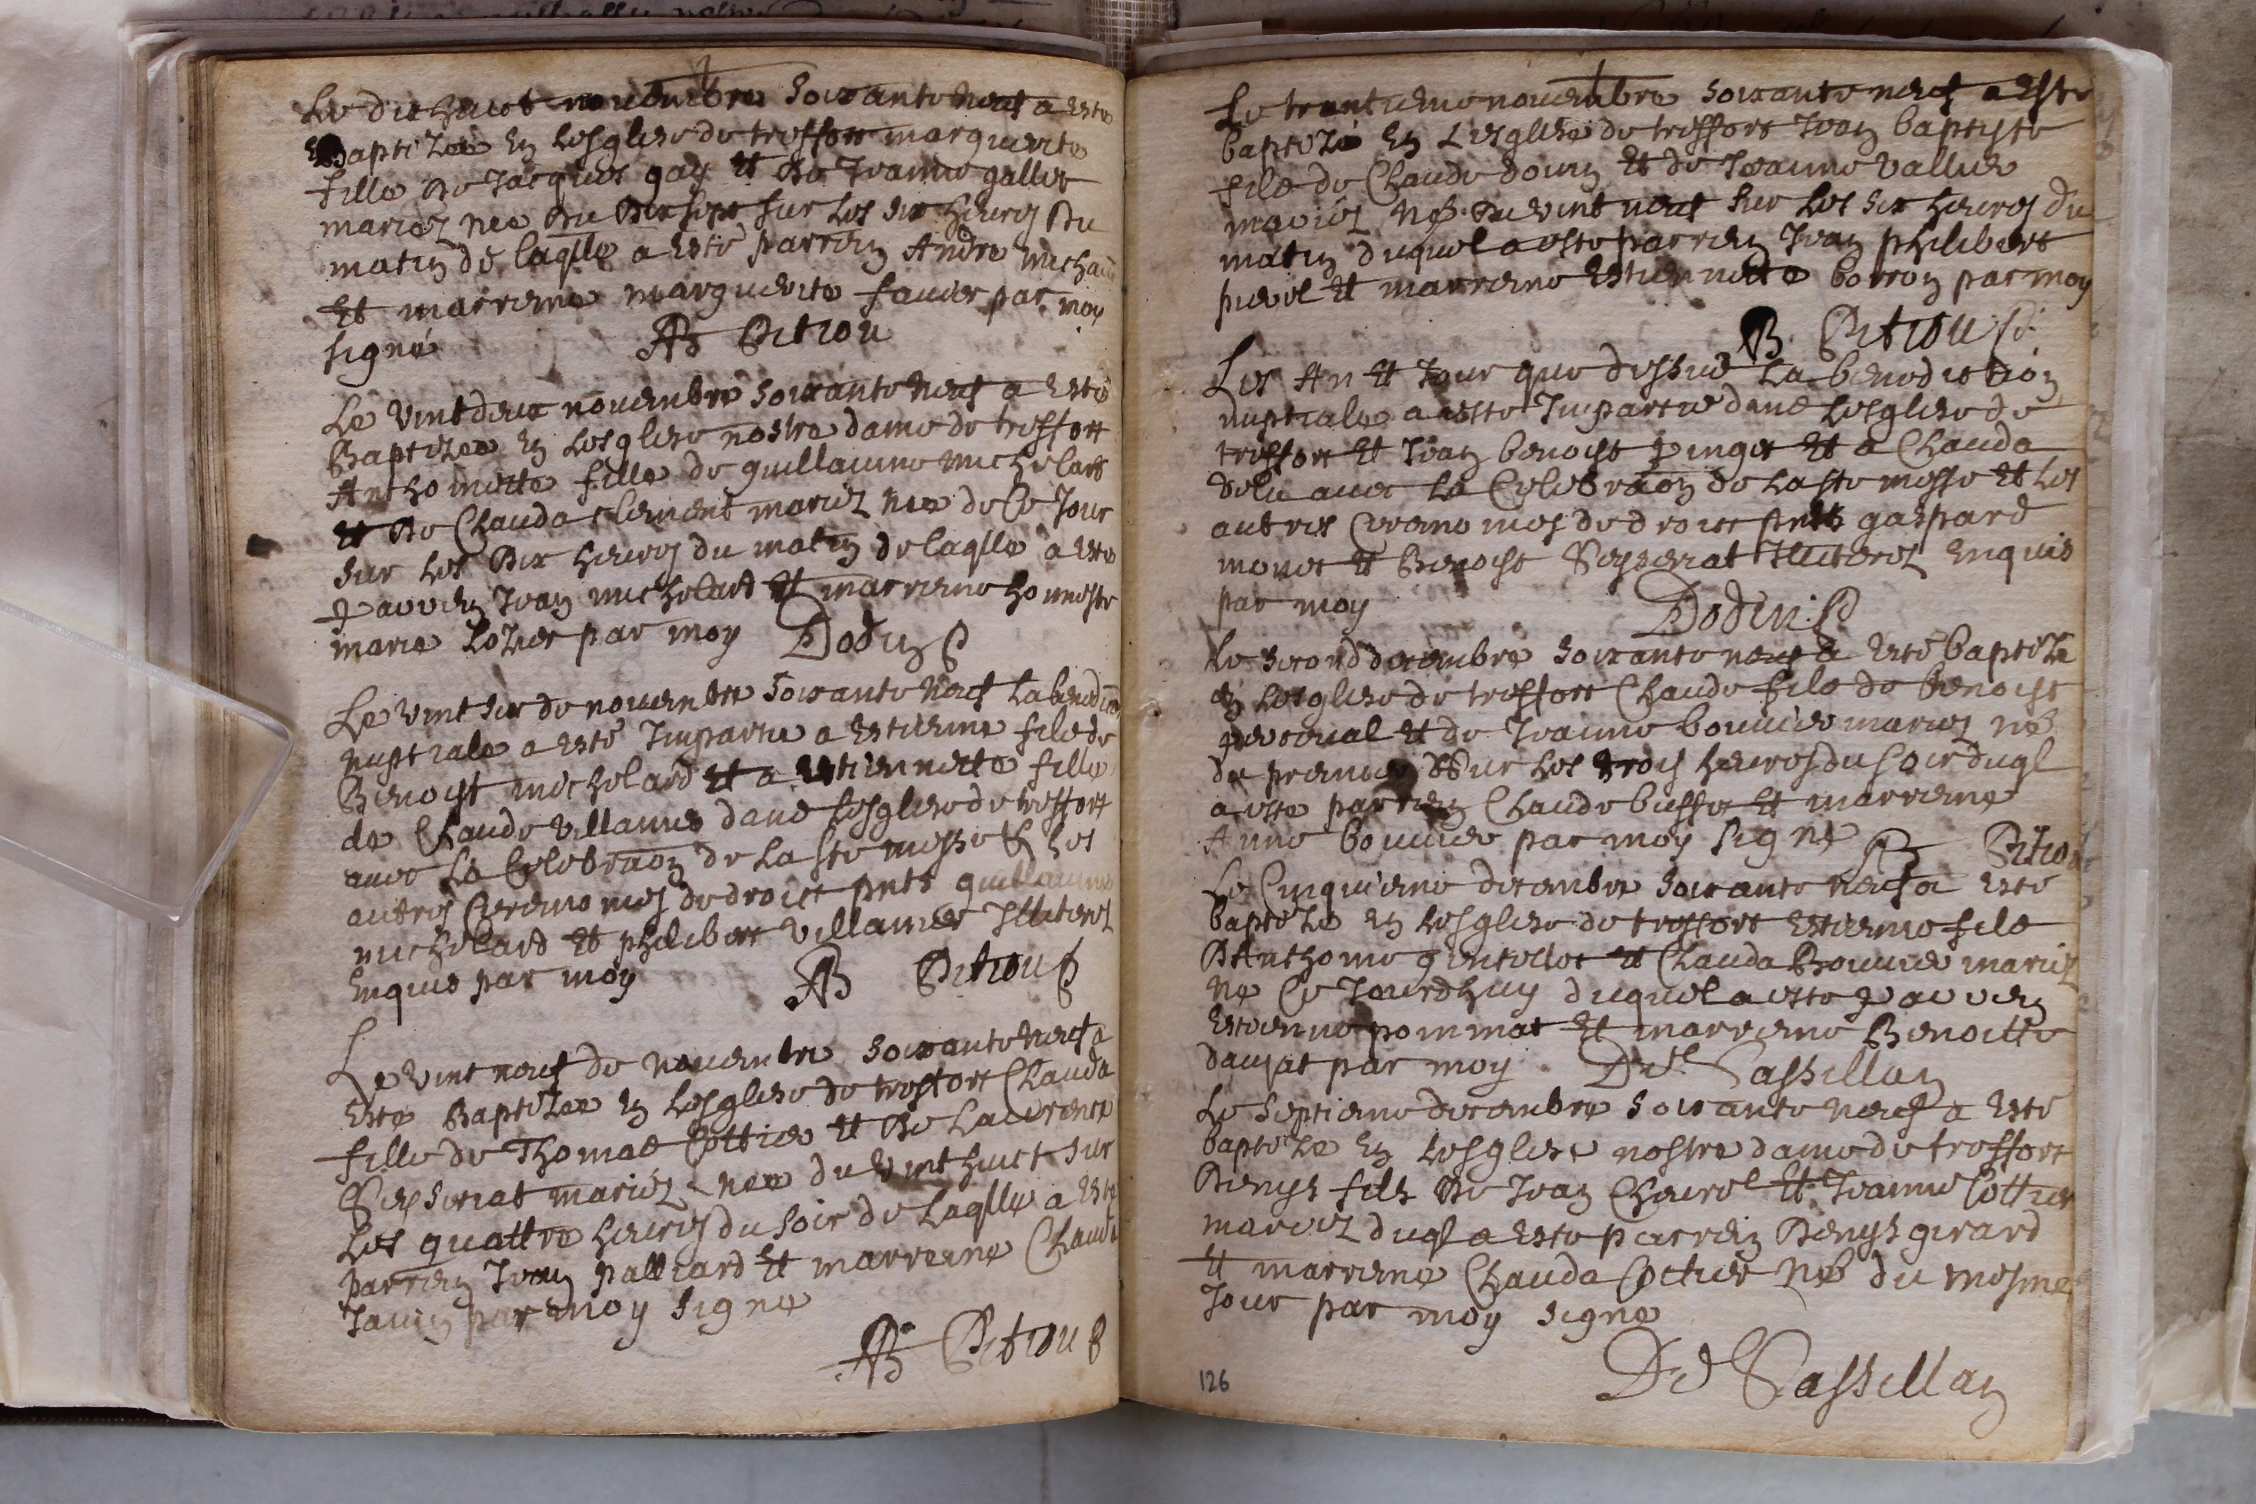 Le dix huict novembre soixante neuf a este
Baptizee en Lesglise de treffort marguerite
fille de Jacques gay et de Jeanne gallet
mariez nee du dix sept sur les six heures du
matin de laqlle a esté parrein Andre michau
Et marreine marguerite favier par moy
signé AB Pitiou
Le vint deux novembre soixante neuf a esté
Baptizee en Lesglise nostre dame de treffort
Anthoinette fille de guillaume michelard
et de Clauda clement mariez nee de Ce Jour
sur les dix heures du matin de laqlle a este
parrein Jean michelard et marreine honneste
marie Lozier par moy Dodin P
Le vint six de novembre soixante neuf La benedion
nuptiale a esté Impartie a Estienne fils de
Benoist michelard et a Estiennette fille
de Claude villanies dans Lesglise de treffort
avec La Celebraon de La ste messe & Les
autres Ceremonies de droict pnts guillaume
michelard et philibert villanier Illiterez
Enquis par moy AB Pitiou P
Le vint neuf de novembre soixante neuf a
Este Baptizee en Lesglise de treffort Clauda
fille de Thomas Cottier et de Laurence
mariez nee du vint huict sur
Les quattre heures du soir de Laqlle a este
parrein Jean palliard et marreine Claude
Janin par moy signe
AB Pitiou P
Le trentieme novembre soixante neuf a Este
baptizé En Lesglise de treffort Jean baptiste
fils de Claude douny et de Jeanne vallier
mariez Né du vint neuf sur Les six heures du
matin duquel a este parrein Jean philibert
et marreine Estiennette borron par moy
B. Pitiou P.
Les An et Jour que dessus La benediction
nuptiale a este Impartie dans Lesglise de
treffort et Jean benoist pinget et a Clauda
avec La Celebraon de La ste messe et Les
autres Ceremonies de droict pnts gaspard
monet et Benoist Illiterez Enquis
par moy Dodin P
Le second decembre soixante neuf a Esté baptize
en Lesglise de treffort Claude fils de Benoist
perceval et de Jeanne bouvier mariez né
du premier sur Les trois heures du soir duql
a este parrein Claude buffet et marreine
Anne bouvier par moy signe B Pitiou
Le Cinquieme decembre soixante neuf a Esté
baptize en Lesglise de treffort Estienne fils
D'Anthoine et Clauda Bouvier mariez
ne Ce Jourdhuy duquel a este parrein
Estienne pommat et marreine Benoitte
par moy Dd Sassillan
Le septieme decembre soixante neuf a Esté
baptize En Lesglise nostre dame de treffort
Denys fils de Jean Chevrel et Jeanne Cottier
mariez duql a este parrein Denys girard
et marreine Clauda Cottier Né du mesme
Jour par moy signe
Dd Sassillan
126